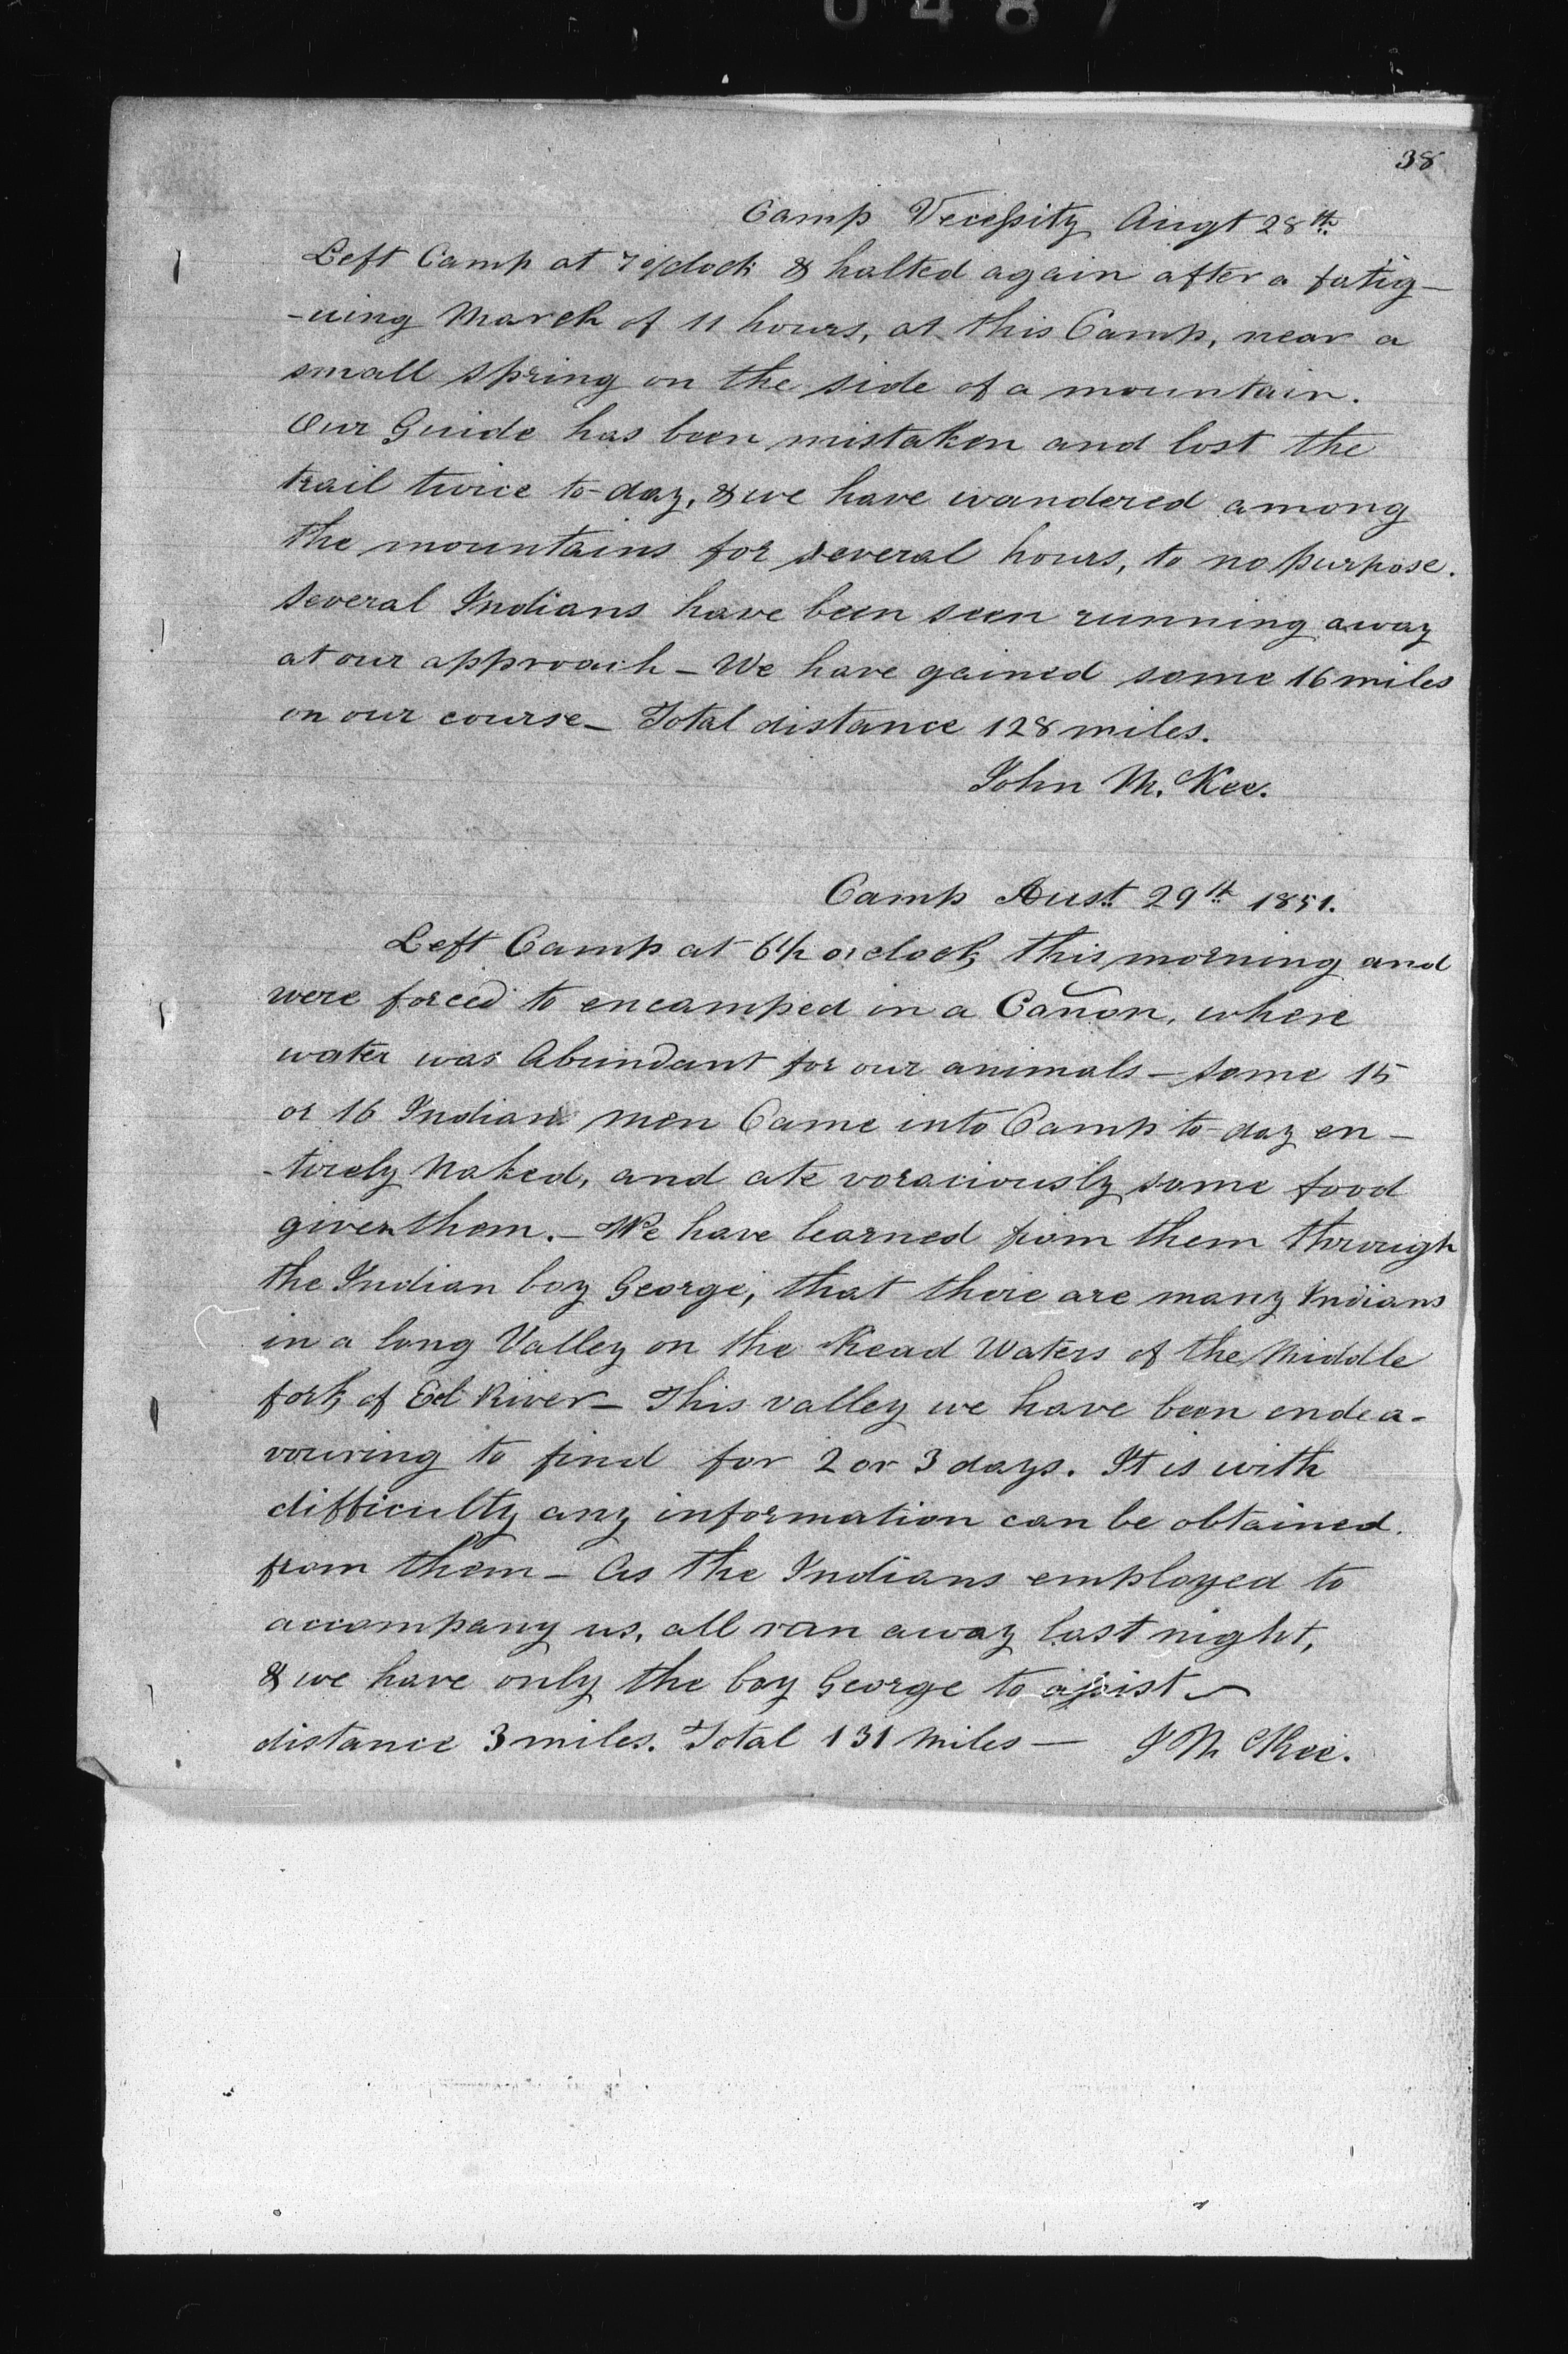 0487
38
Camp Necessity Augt 28th
Left Camp at 7 o'clock & halted again after a fatig-
-uing March of 11 hours, at this Camp, near a
small spring on the side of a mountain.
Our Guide has been mistaken and lost the
trail twice to-day, & we have wandered among
the mountains for several hours, to no purpose.
Several Indians have been seen running away
at our approach – We have gained some 16 miles
on our course – Total distance 128 miles.
John M. Kee.
Camp Aust. 29th 1851.
Left Camp at 6½ o'clock this morning and
were forced to encamped in a Cañon, where
water was Abundant for our animals – some 15
or 16 Indian men Came into Camp to-day en-
-tirely Naked, and ate voraciously some food
given them. – We have learned from them through
the Indian boy George, that there are many Indians
in a long Valley on the Head Waters of the Middle
fork of Eel River – This valley we have been endea-
vouring to find for 2 or 3 days. It is with
difficulty any information can be obtained.
from them – As the Indians employed to
accompany us, all ran away last night,
& we have only the boy George to assist –
distance 3 miles. Total 131 Miles — J M Kee.